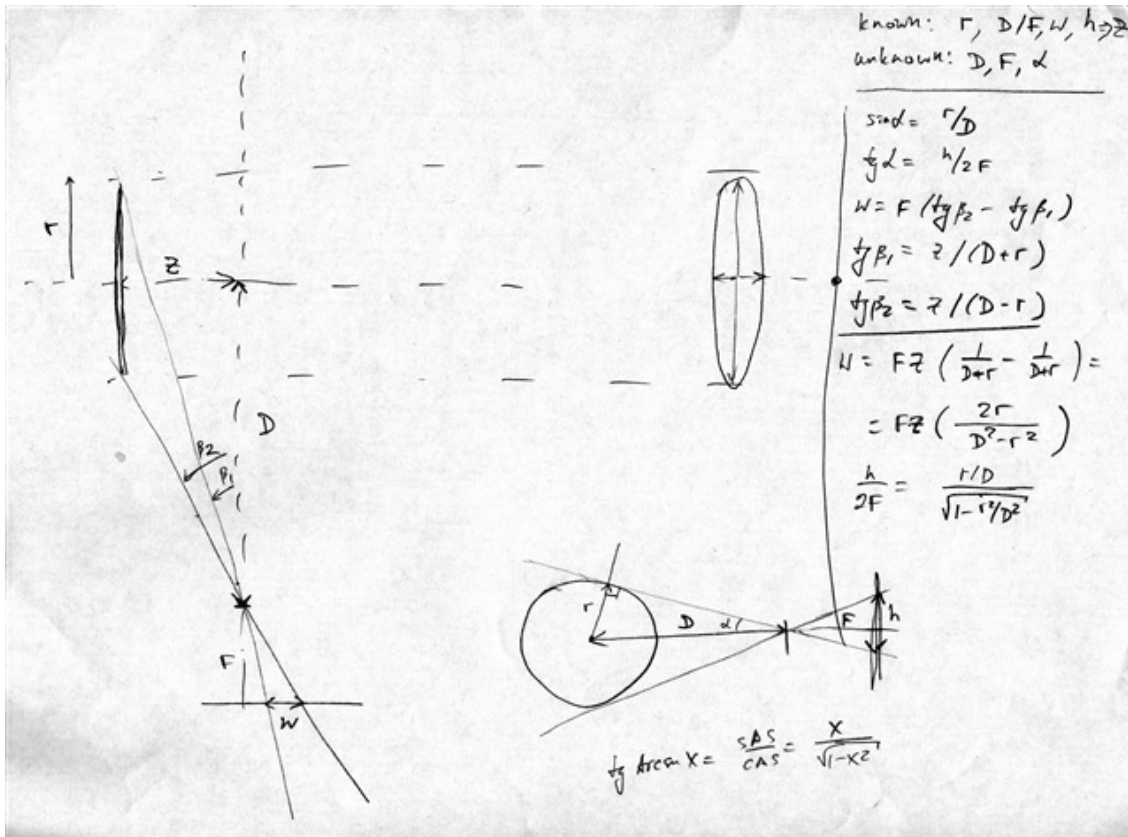 known: r, D/F, w, h => z
unknown: D, F, α
sinα = r/D
tgα = h/2F
W = F (tgβ₂ - tgβ₁)
tgβ₁ = z/(D+r)
tgβ₂ = z/(D-r)
W = FZ (1/(D+r) - 1/(D+r)) =
= FZ (2r/(D²-r²))
h/2F = (r/D)/√(1-r²/D²)
r
Z
D
β₂
β₁
F
w
r
D
α
F
h
tg Arcsin X = SAS/CAS = X/√(1-X²)